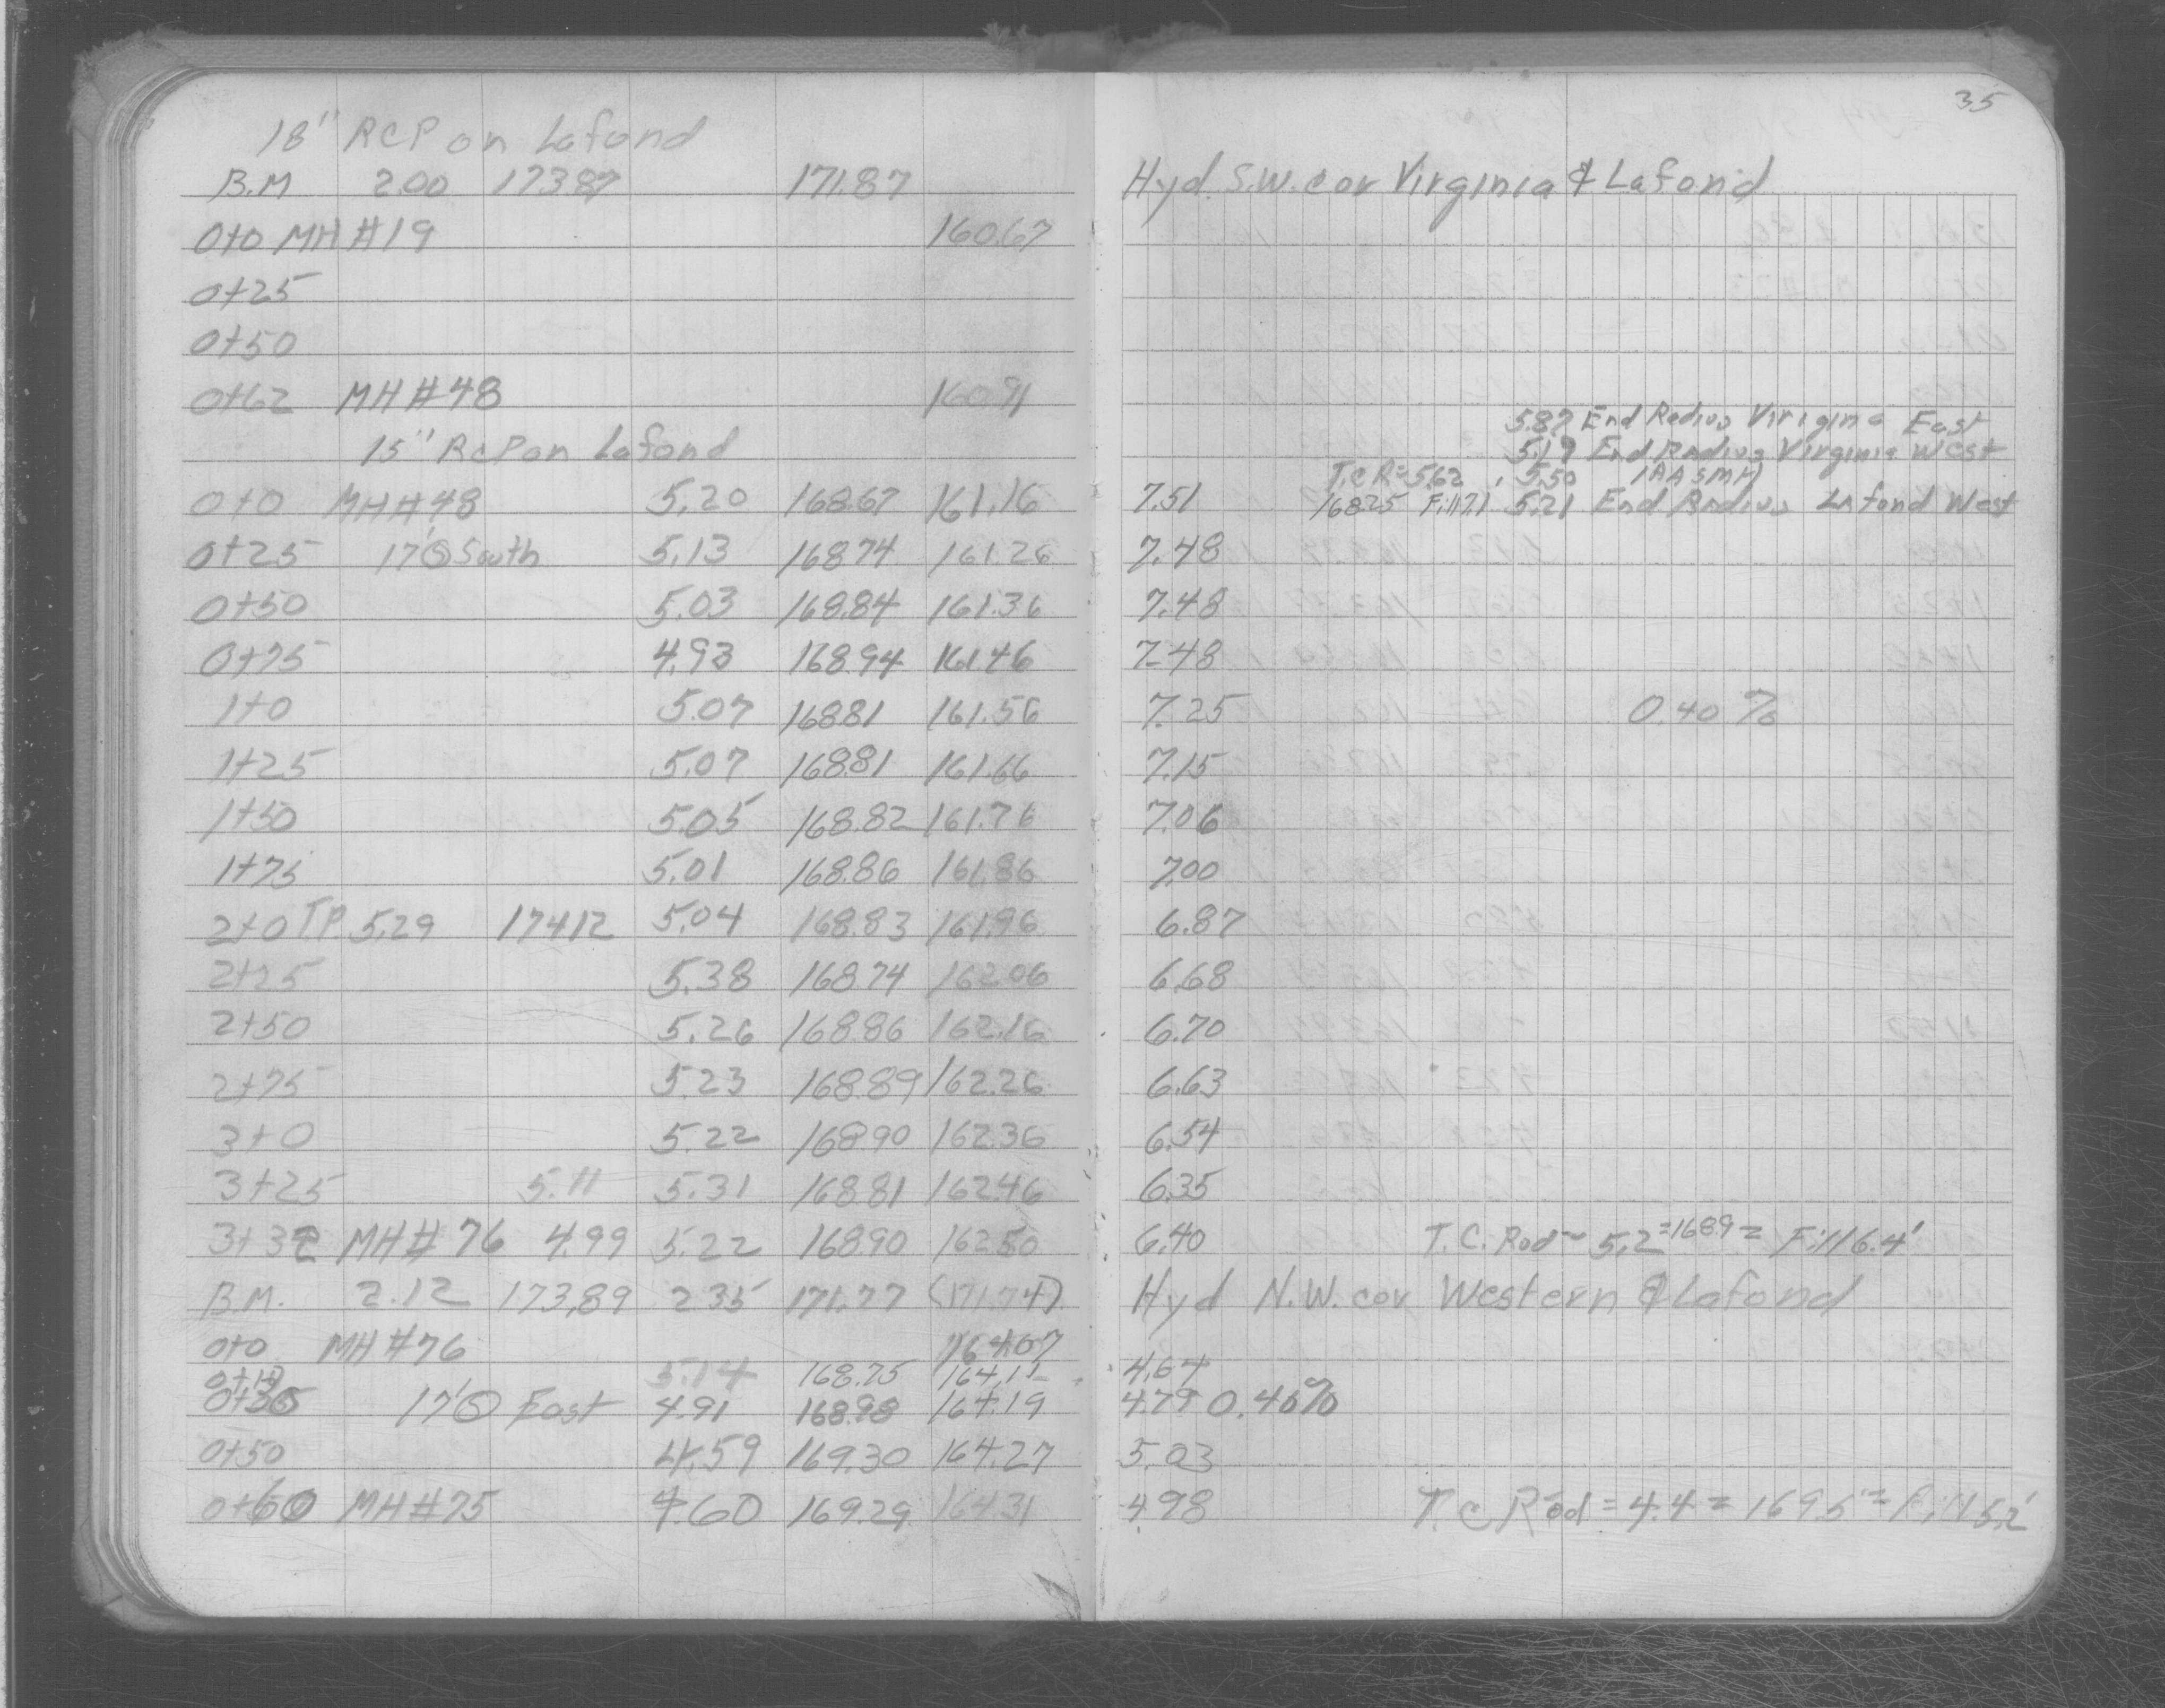 35
18" RCP on Lafond
B.M 2.00 173.87 171.87 Hyd. S.W. cor Virginia & Lafond
0+0 MH #19 160.67
0+25
0+50
0+62 MH #48 160.91
5.87 End Radius Viriginia East
15" RCP on Lafond 5.19 End Radius Virginia West
T.C R= 5.62 5.50
0+0 MH #48 5.20 168.67 161.16 7.51 168.25 Fill 7.1 5.21 End Radius Lafond West
0+25 17' South 5.13 168.74 161.26 7.48
0+50 5.03 168.84 161.36 7.48
0+75 4.93 168.94 161.46 7.48
1+0 5.07 168.81 161.56 7.25 0.40 %
1+25 5.07 168.81 161.66 7.15
1+50 5.05 168.82 161.76 7.06
1+75 5.01 168.86 161.86 7.00
2+0 T.P. 5.29 174.12 5.04 168.83 161.96 6.87
2+25 5.38 168.74 162.06 6.68
2+50 5.26 168.86 162.16 6.70
2+75 5.23 168.89 162.26 6.63
3+0 5.22 168.90 162.36 6.54
3+25 5.11 5.31 168.81 162.46 6.35
3+32 MH #76 4.99 5.22 168.90 162.50 6.40 T.C. Rod = 5.2 = 168.9 = Fill 6.4'
B.M. 2.12 173.89 2.35 171.77 (171.74) Hyd N.W. cor Western & Lafond
0+0 MH #76 164.07
5.14 168.75 164.11 4.64
17' East 4.91 168.98 164.19 4.79 0.40%
0+50 4.59 169.30 164.27 5.03
0+60 MH #75 4.60 169.29 164.31 4.98 T.C Rod = 4.4 = 169.5 = Fill 5.2'